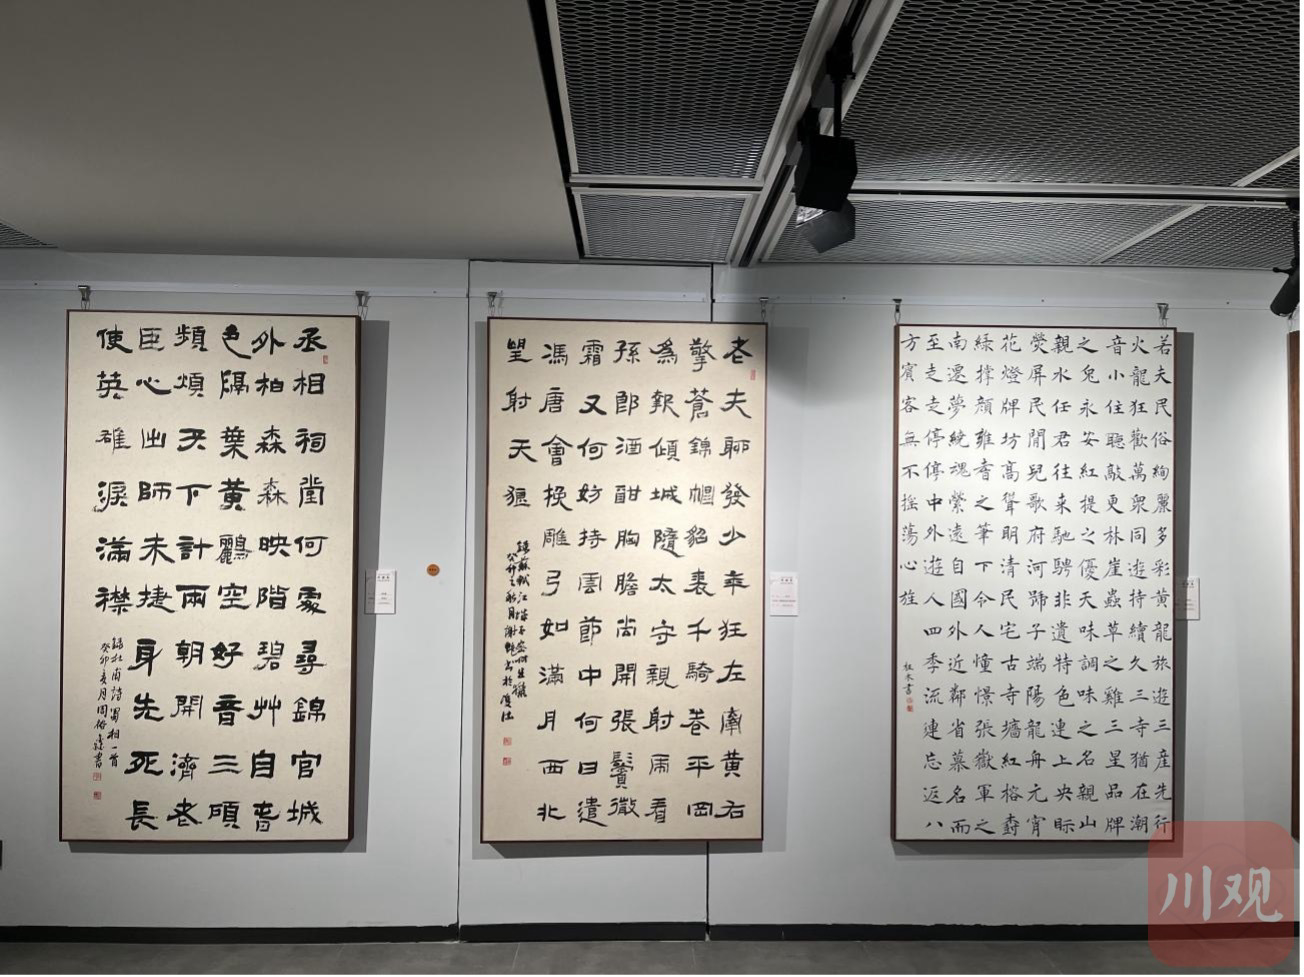 丞相祠堂何處尋錦官城
外柏森森映階碧艸自春
色隔葉黃鸝空好音三顧
頻煩天下計兩朝開濟老
臣心出師未捷身先死長
使英雄淚滿襟
錄杜甫詩蜀相一首
癸卯亥月周書
老夫聊發少年狂左牽黃右
擎蒼錦帽貂裘千騎卷平岡
為報傾城隨太守親射虎看
孫郎酒酣胸膽尚開張鬢微
霜又何妨持雲節中何日遣
馮唐會挽雕弓如滿月西北
望射天狼
錄蘇軾江城子密州出獵
癸卯之秋月謝書於
若夫民俗絢麗多彩黃龍旅遊三産先行
火龍狂歡萬眾同遊持續久三寺猶在潮
音小住聽敲更林崖蟲草之雞三星品牌
之兔永安紅提之優天味調味之名親山
親水任君往来馳騁非遺特色連上央际
熒屏民間兒歌府河號子端陽龍舟元宵
花燈牌坊高聲明清民宅古寺牆紅榕樹
綠撑顏雜音之筆下令人憧憬張嶽軍之
南遷夢繞魂縈遠自國外近鄰省慕名而
至走走停停中外遊人四季流連忘返八
方賓客無不搖蕩心旌
川观